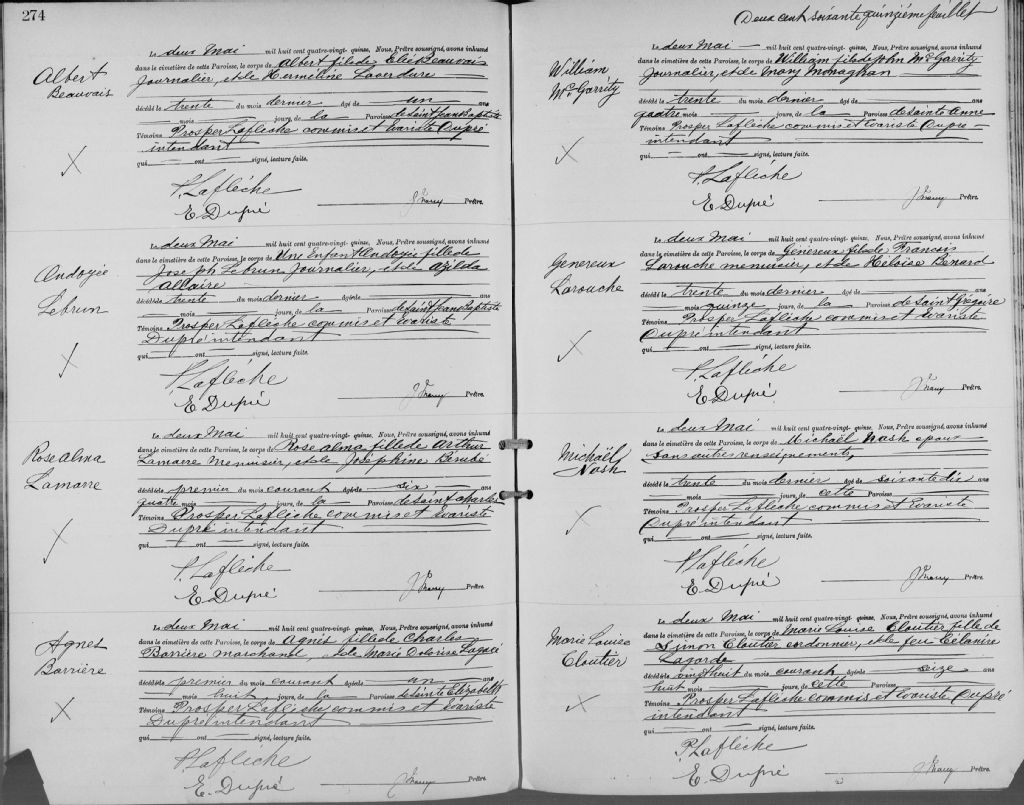 274
Albert
Beauvais
Le deux Mai mil huit cent quatre-vingt-quinze, Nous, Prêtre soussigné, avons inhumé
dans le cimetière de cette Paroisse, le corps de Albert fils de Elie Beauvais
Journalier, et de Hermeline Laverdure
décédé le trente du mois dernier âgé de un ans
mois jours, de la Paroisse de Saint Jean Baptiste
Témoins Prosper Laflèche commis et Evariste Dupré
intendant
qui ont signé, lecture faite.
P. Laflèche
E. Dupré
Prêtre.
Ondoyée
Lebrun
Le deux Mai mil huit cent quatre-vingt-quinze, Nous, Prêtre soussigné, avons inhumé
dans le cimetière de cette Paroisse, le corps de Une Enfant Ondoyée fille de
Joseph Lebrun Journalier, et de Azilda
Allaire
décédé le trente du mois dernier âgé de ans
mois jours, de la Paroisse de Saint Jean Baptiste
Témoins Prosper Laflèche commis et Evariste
Dupré intendant
qui ont signé, lecture faite.
P. Laflèche
E. Dupré
Prêtre.
Rose alma
Lamarre
Le deux Mai mil huit cent quatre-vingt-quinze, Nous, Prêtre soussigné, avons inhumé
dans le cimetière de cette Paroisse, le corps de Rose alma fille de Arthur
Lamarre Menuisier, et de Joséphine Bérubé
décédé le premier du mois courant âgé de six ans
quatre mois jours, de la Paroisse de Saint Charles
Témoins Prosper Laflèche commis et Evariste
Dupré intendant
qui ont signé, lecture faite.
P. Laflèche
E. Dupré
Prêtre.
Agnes
Barrière
Le deux Mai mil huit cent quatre-vingt-quinze, Nous, Prêtre soussigné, avons inhumé
dans le cimetière de cette Paroisse, le corps de Agnès fille de Charles
Barrière marchand, et de Marie Delorise
décédé le premier du mois courant âgé de un an
mois huit jours, de la Paroisse de Sainte Elizabeth
Témoins Prosper Laflèche commis et Evariste
Dupré intendant
qui ont signé, lecture faite.
P. Laflèche
E. Dupré
Prêtre.
Deux cent soixante quinzième feuillet
William
McGarrity
Le deux Mai mil huit cent quatre-vingt-quinze, Nous, Prêtre soussigné, avons inhumé
dans le cimetière de cette Paroisse, le corps de William fils de John McGarrity
Journalier, et de Mary Monaghan
décédé le trente du mois dernier âgé de ans
quatre mois jours, de la Paroisse de Sainte Anne
Témoins Prosper Laflèche commis et Evariste Dupré
intendant
qui ont signé, lecture faite.
P. Laflèche
E. Dupré
Prêtre.
Genereux
Larouche
Le deux Mai mil huit cent quatre-vingt-quinze, Nous, Prêtre soussigné, avons inhumé
dans le cimetière de cette Paroisse, le corps de Généreux fils de Francois
Larouche menuisier, et de Héloise Benard
décédé le trente du mois dernier âgé de ans
mois quinze jours, de la Paroisse de Saint Grégoire
Témoins Prosper Laflèche commis et Evariste
Dupré intendant
qui ont signé, lecture faite.
P. Laflèche
E. Dupré
Prêtre.
Michaël
Nash
Le deux Mai mil huit cent quatre-vingt-quinze, Nous, Prêtre soussigné, avons inhumé
dans le cimetière de cette Paroisse, le corps de Michaël Nash epoux
Sans autres renseignements,
décédé le trente du mois dernier âgé de soixante dix ans
mois jours, de cette Paroisse
Témoins Prosper Laflèche commis et Evariste
Dupré intendant
qui ont signé, lecture faite.
P. Laflèche
E. Dupré
Prêtre.
Marie Louise
Cloutier
Le deux Mai mil huit cent quatre-vingt-quinze, Nous, Prêtre soussigné, avons inhumé
dans le cimetière de cette Paroisse, le corps de Marie Louise Cloutier fille de
Simon Cloutier cordonnier, et de feu Zélanire
Lagorde
décédé le vingt huit du mois courant âgé de seize ans
huit mois jours, de cette Paroisse
Témoins Prosper Laflèche commis et Evariste Dupré
intendant
qui ont signé, lecture faite.
P. Laflèche
E. Dupré
Prêtre.